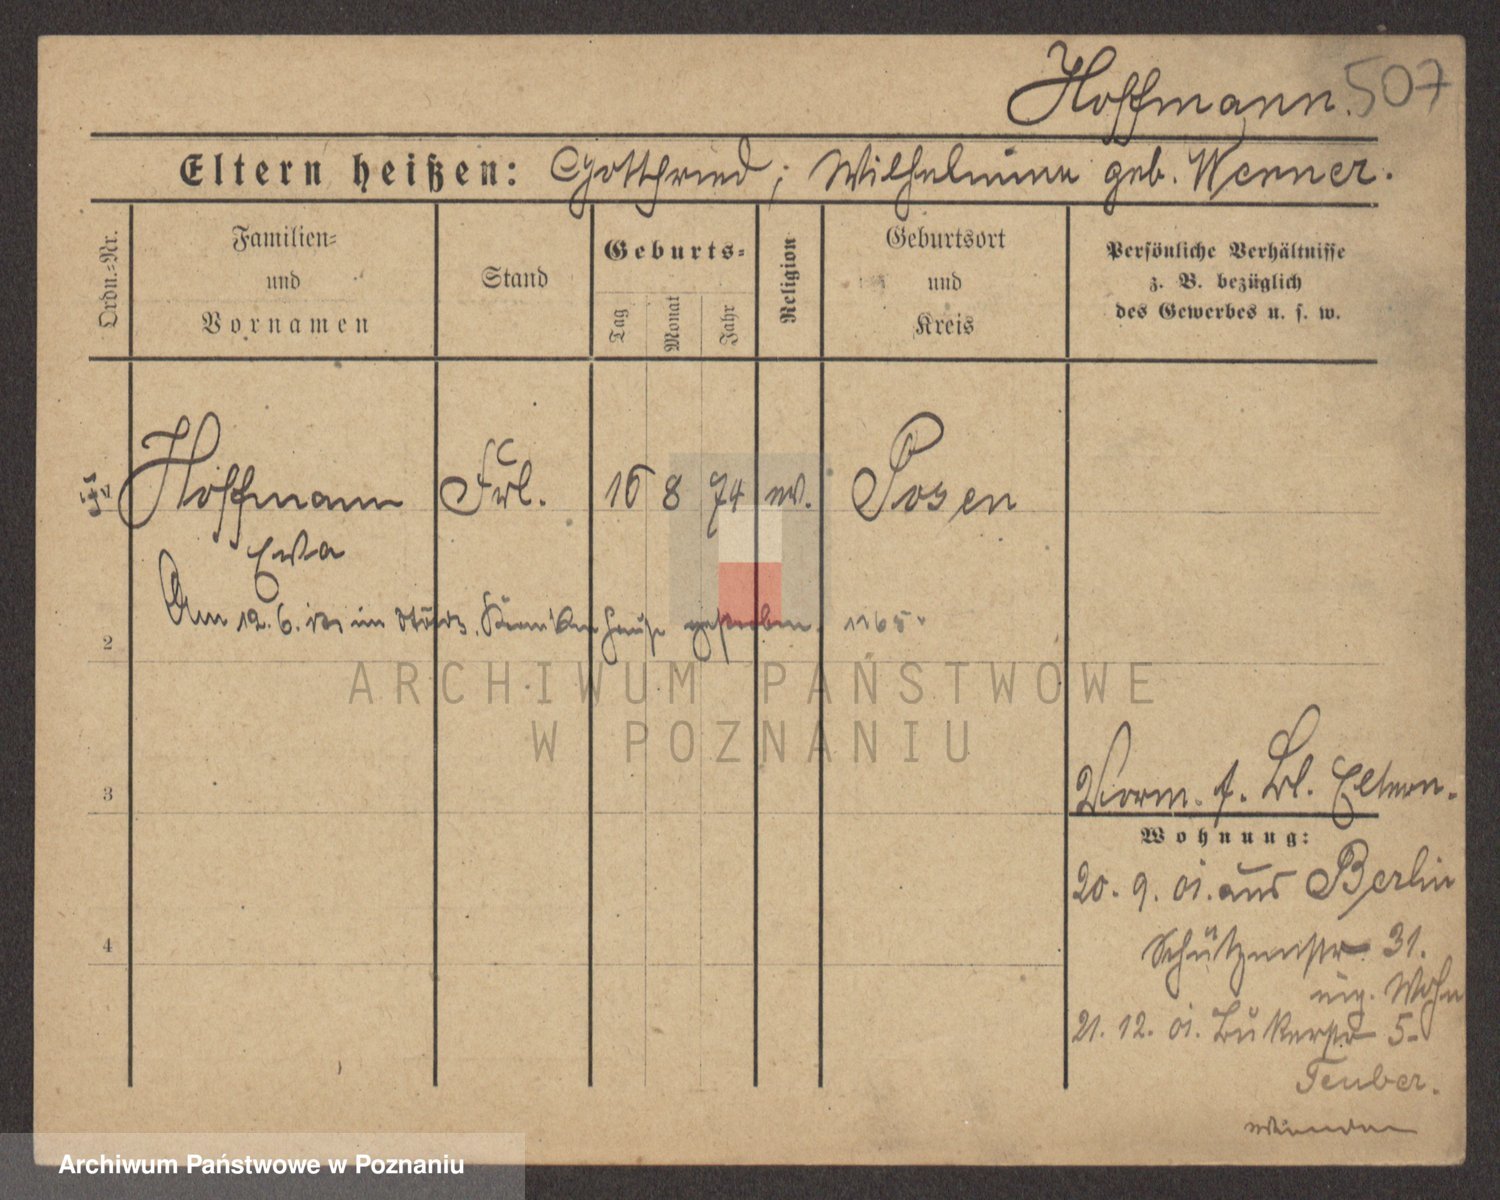 Hoffmann. 507
Eltern heißen: Gottfried; Wilhelmine geb. Wenner.
Ordn.-Nr.
Familien-
und
Vornamen
Stand
Geburts-
Tag
Monat
Jahr
Religion
Geburtsort
und
Kreis
Persönliche Verhältnisse
z. B. bezüglich
des Gewerbes u. s. w.
Hoffmann Frl. 16 8 74 ev. Posen
Ewa
Am 12. 6. im städt. Krankenhause gestorben. 1165
2
ARCHIWUM PAŃSTWOWE
W POZNANIU
3
Vorm. f. Eltern.
Wohnung:
20. 9. 01. aus Berlin
Schützenstr 31.
eig. Wohn
21. 12. 01. Bukerstr 5-
4
Teuber.
Archiwum Państwowe w Poznaniu